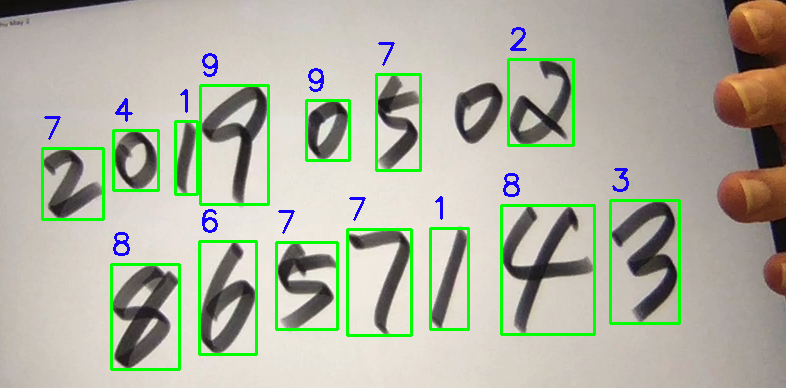 May 2
7 4 1 9 9 7 2
2019 05 02
8 6 7 7 1 8 3
8657143